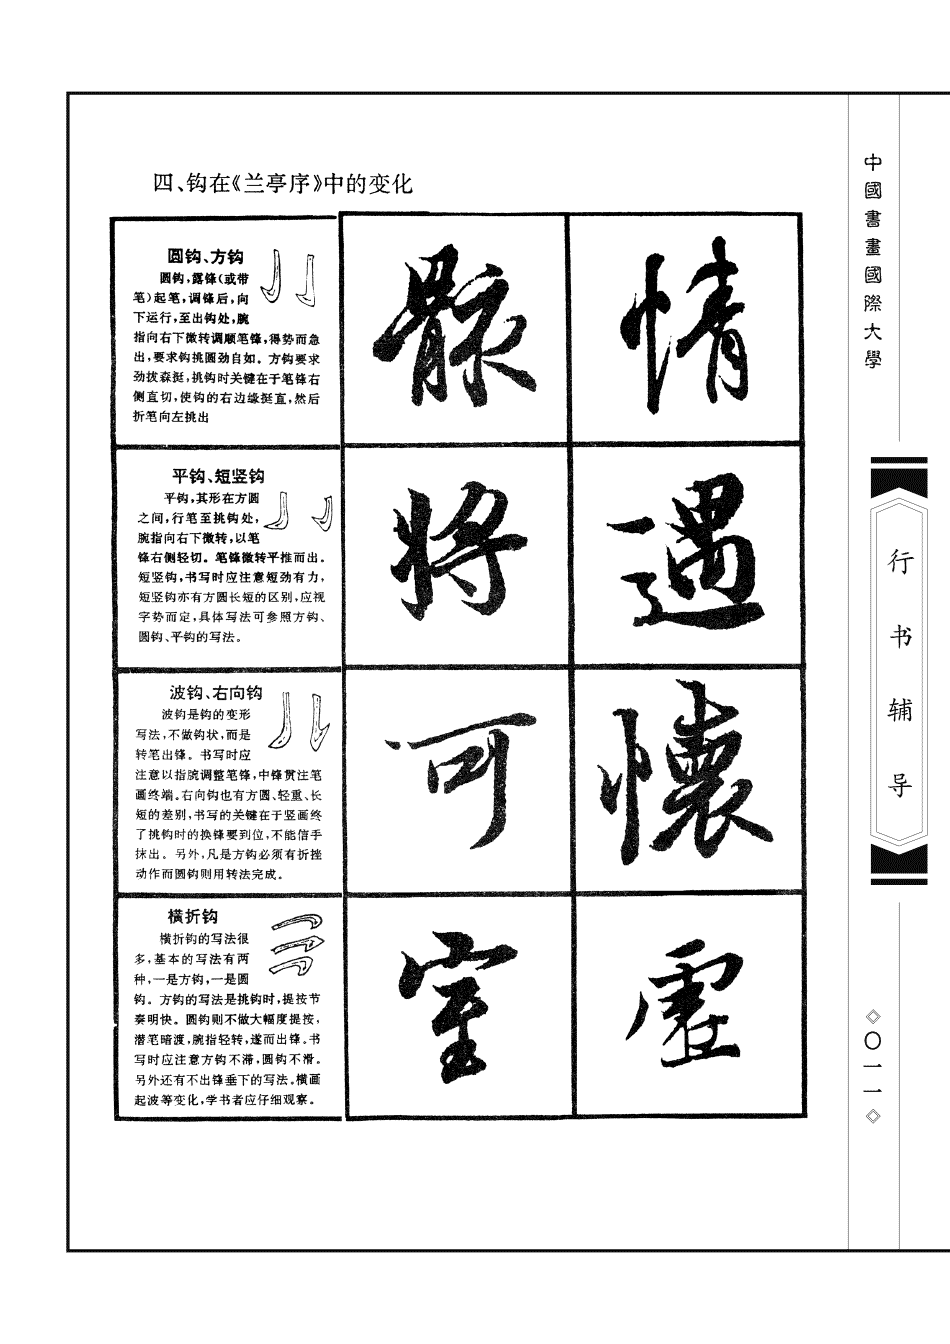 四、钩在《兰亭序》中的变化
圆钩、方钩
圆钩,露锋(或带
笔)起笔,调锋后,向
下运行,至出钩处,腕
指向右下微转调顺笔锋,得势而急
出,要求钩挑圆劲自如。方钩要求
劲拔森挺,挑钩时关键在于笔锋右
侧直切,使钩的右边缘挺直,然后
折笔向左挑出
骸
情
平钩、短竖钩
平钩,其形在方圆
之间,行笔至挑钩处,
腕指向右下微转,以笔
锋右侧轻切。笔锋微转平推而出。
短竖钩,书写时应注意短劲有力,
短竖钩亦有方圆长短的区别,应视
字势而定,具体写法可参照方钩、
圆钩、平钩的写法。
将
遇
波钩、右向钩
波钩是钩的变形
写法,不做钩状,而是
转笔出锋。书写时应
注意以指腕调整笔锋,中锋贯注笔
画终端。右向钩也有方圆、轻重、长
短的差别,书写的关键在于竖画终
了挑钩时的换锋要到位,不能信手
抹出。另外,凡是方钩必须有折挫
动作而圆钩则用转法完成。
可
懷
横折钩
横折钩的写法很
多,基本的写法有两
种,一是方钩,一是圆
钩。方钩的写法是挑钩时,提按节
奏明快。圆钩则不做大幅度提按,
潜笔暗渡,腕指轻转,遂而出锋。书
写时应注意方钩不滞,圆钩不滑。
另外还有不出锋垂下的写法。横画
起波等变化,学书者应仔细观察。
室
虚
中國書畫國際大學
行书辅导
〇一一